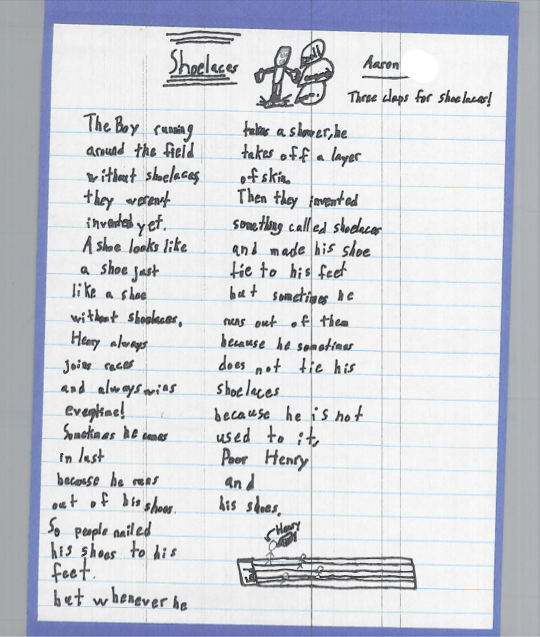 Shoelaces
Aaron
Three claps for shoelaces!
The Boy running
around the field
without shoelaces
they weren't
invented yet.
A shoe looks like
a shoe just
like a shoe
without shoelaces.
Henry always
joins races
and always wins
everytime!
Sometimes he comes
in last
because he runs
out of his shoes.
So people nailed
his shoes to his
feet.
but whenever he
takes a shower, he
takes off a layer
of skin.
Then they invented
something called shoelaces
and made his shoe
tie to his feet
but sometimes he
runs out of them
because he sometimes
does not tie his
shoelaces
because he is not
used to it,
Poor Henry
and
his shoes.
Henry